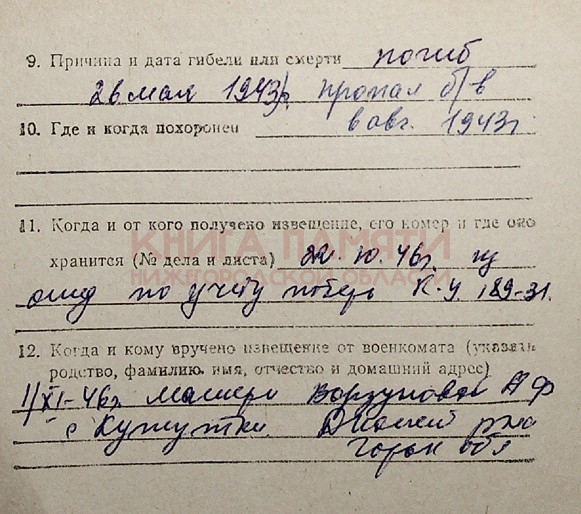 9. Причина и дата гибели или смерти погиб
26 мая 1943г. пропал б/в
10. Где и когда похоронен в авг. 1943г.
11. Когда и от кого получено извещение, его номер и где оно
КНИГА ПАМЯТИ
хранится (№ дела и листа) 22. 10. 46г. из
НИЖЕГОРОДСКОЙ ОБЛАСТИ
отд по учёту потерь К-У 189-31.
12. Когда и кому вручено извещение от военкомата (указать
родство, фамилию, имя, отчество и домашний адрес)
11/XI-46г матери А Ф
с Кутутки р-на
Горьк обл